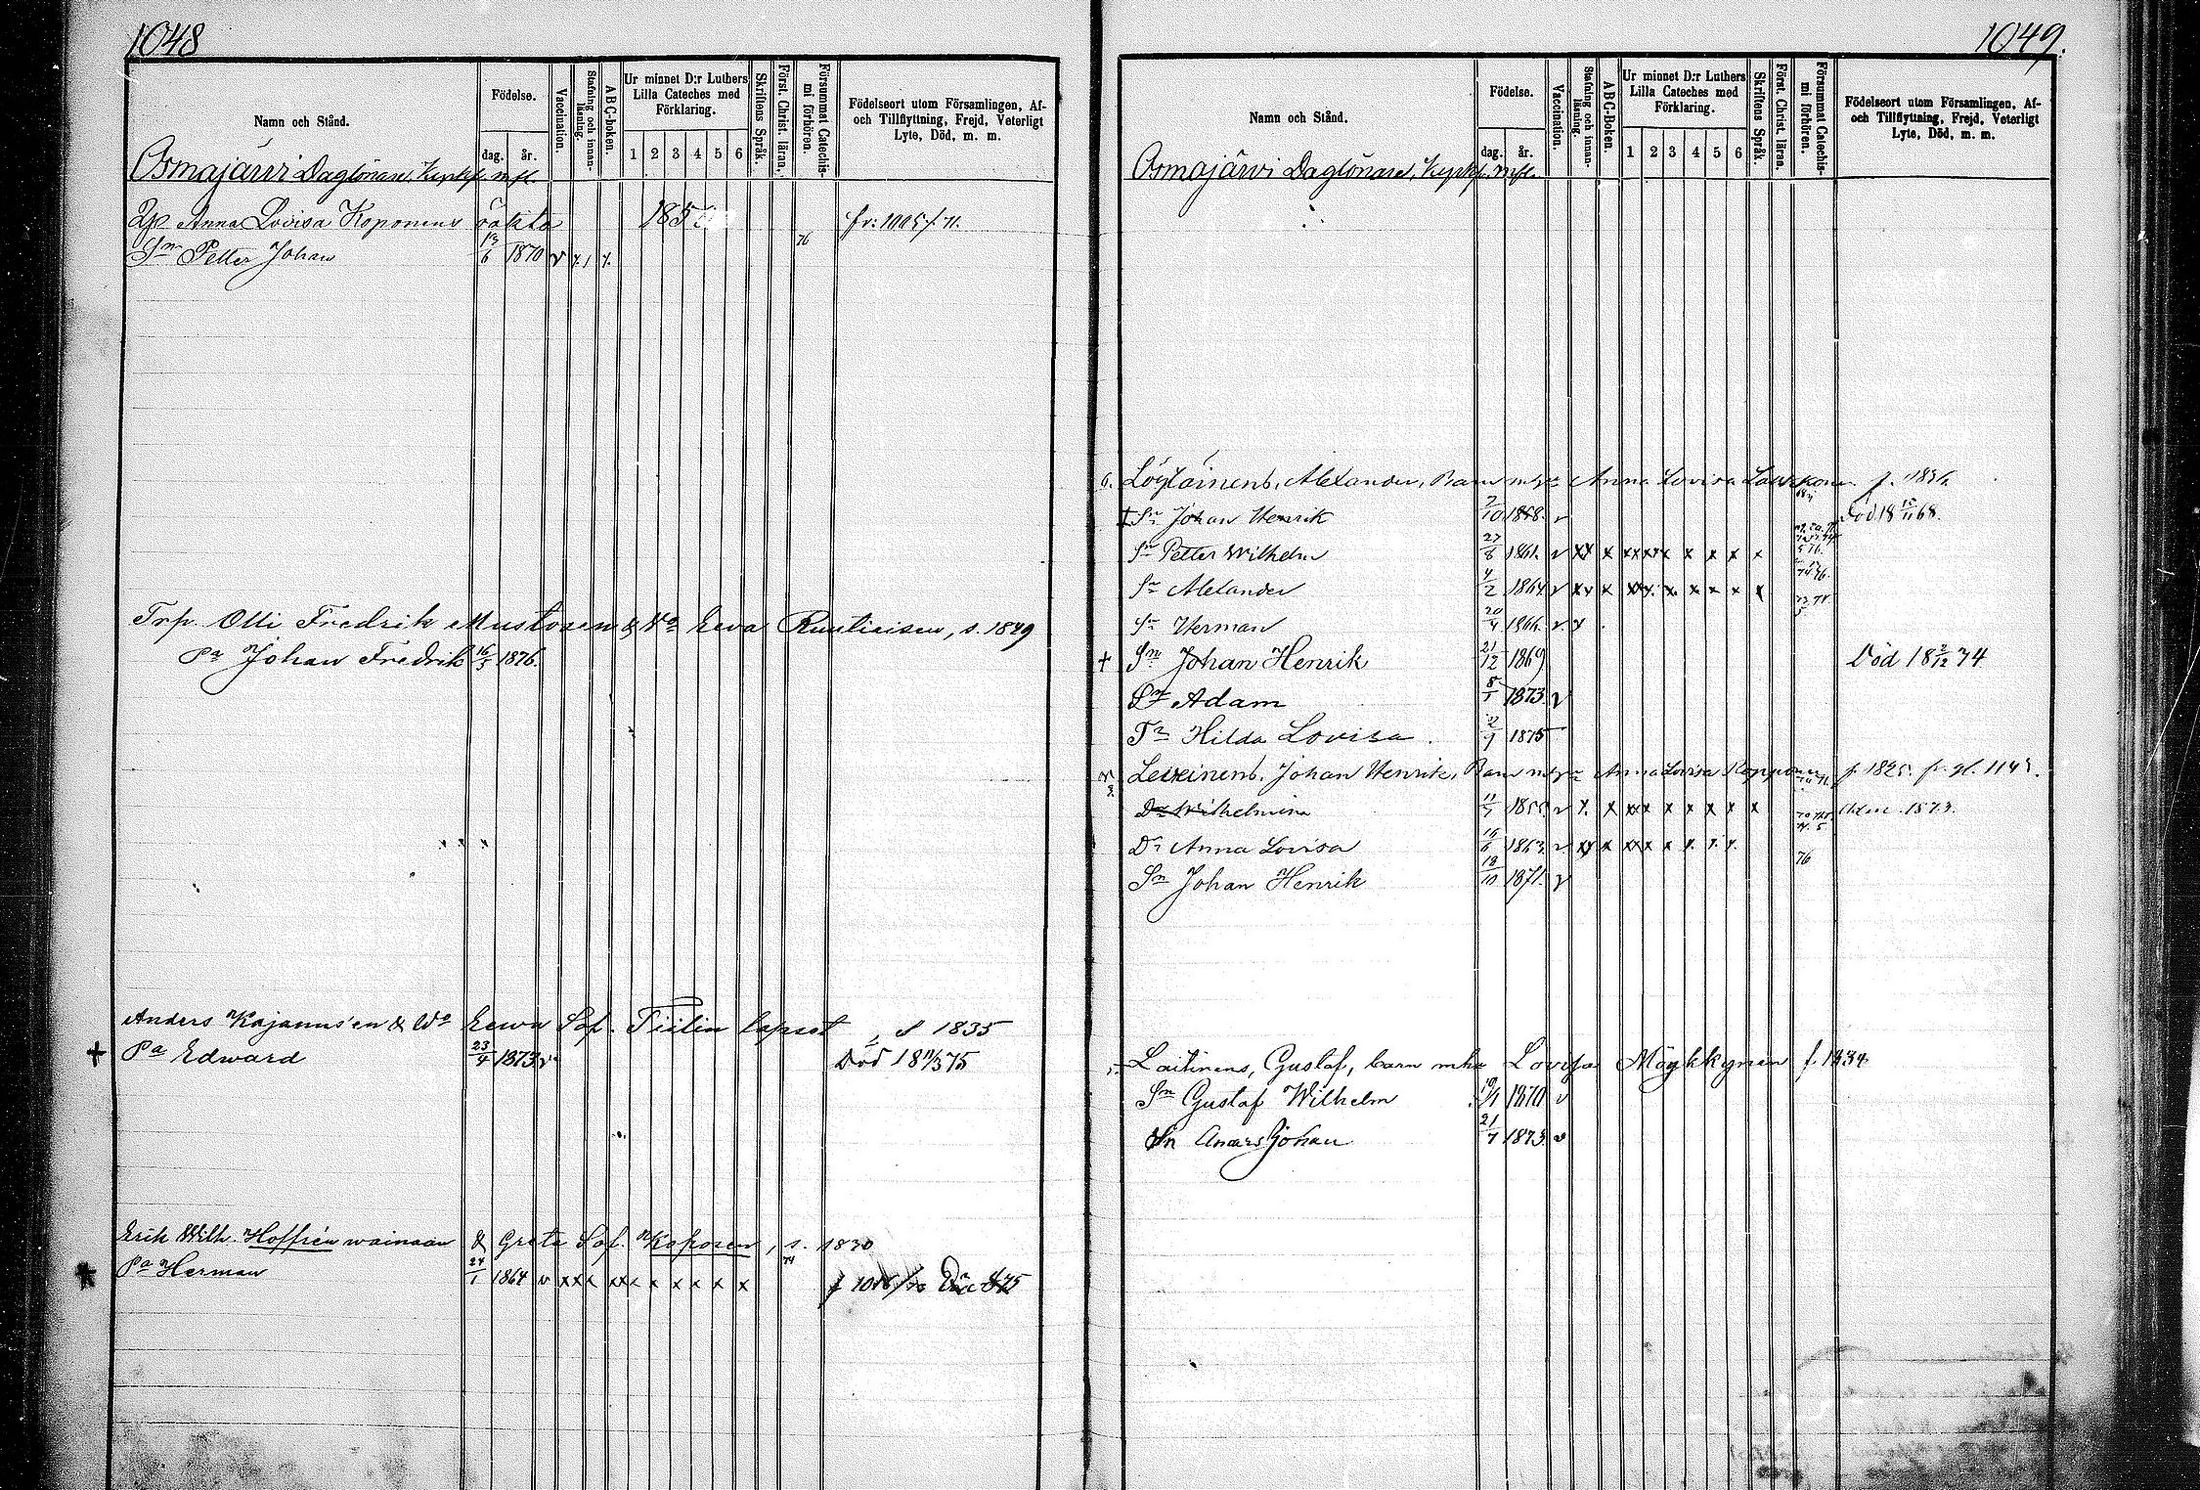 1048
Namn och Stånd.
Födelse.
dag. år.
Vaccination.
Stafning och innan-läsning.
ABC-boken.
Ur minnet D:r Luthers Lilla Cateches med Förklaring.
1 2 3 4 5 6
Skriftens Språk.
Först. Christ. läran.
Försummat Catechis-mi förhören.
Födelseort utom Församlingen, Af- och Tillflyttning, Frejd, Veterligt Lyte, Död, m. m.
Osmajärvi Daglönare, Kyrkf. mfl.
Anna Lovisa Koponens oäkta
Sn Petter Johan 13/6 1870 v
76
Trp. Olli Fredrik Mustosen & Wo Eeva s. 1849
Pa Johan Fredrik 16/5 1876.
Anders Kajanus'en & Wo Eewa Sof. Tiilin lapset s 1835
+ Pa Edward 23/4 1873 v Död 18 11/3 75
Erik Wilh. Hoffrén wainaan & Greta Sof. Koposen, s. 1830
Pa Herman 24/1 1864 v x x x x x x x x x x x
74
1049.
Namn och Stånd.
Födelse.
dag. år.
Vaccination.
Stafning och innan-läsning.
ABC-Boken.
Ur minnet D:r Luthers Lilla Cateches med Förklaring.
1 2 3 4 5 6
Skriftens Språk.
Först. Christ. läran.
Försummat Catechis-mi förhören.
Födelseort utom Församlingen, Af- och Tillflyttning, Frejd, Veterligt Lyte, Död, m. m.
Osmajärvi Daglönare, Kyrkf. mfl.
Alexander, Barn m Anna Lovisa f. 1836
+ Sn Johan Henrik 7/10 1858. v Död 18 15/11 68.
Sn Petter Wilhelm 27/8 1861. v xx x xxxx x x x x x
Sn Alexander 4/2 1864 v xx x xxx x x x x x x
Sn Herman 20/4 1866. v.
+ Sn Johan Henrik 21/12 1869 Död 18 2/12 74
Sn Adam 8/1 1873. v
Tr Hilda Lovisa. 2/9 1875
Johan Henrik, Barn m Anna Lovisa Kopponen f. 1825.
Dr Wilhelmina 11/7 1855 v x. x xxx x x x x x x
Dr Anna Lovisa 16/6 1863 v xx x xxx x x x x x
Sn Johan Henrik 18/10 1871. v
76
Laitinens, Gustaf, barn mhu Lovisa Möykkynen f. 1834
Sn Gustaf Wilhelm 1870 v
Sn Anders Johan 21/7 1873. v